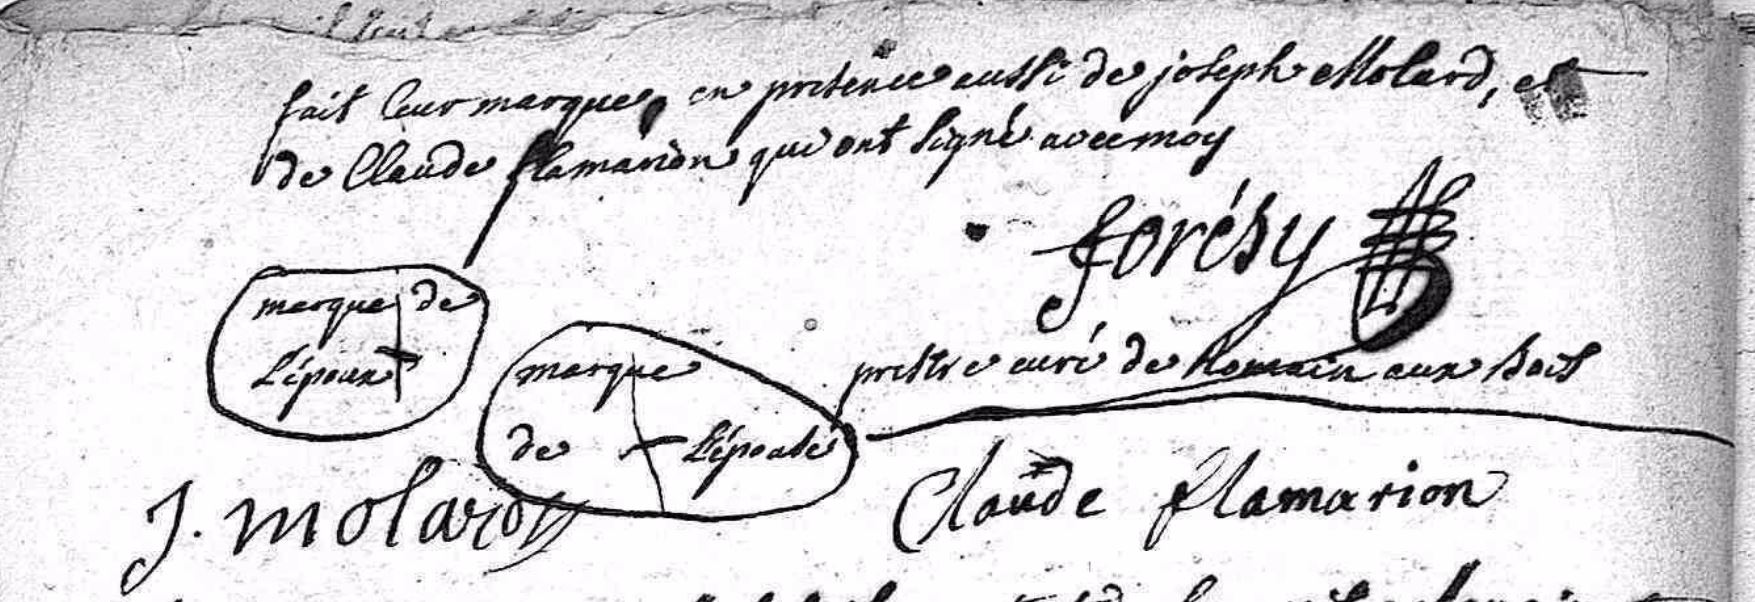 fait leur marque, en presence aussi de joseph Molard, et
de Claude flamarion qui ont signé avec moy
forésy
marque de
L'époux
prestre curé de Romain aux bois
marque
de L'épouse
J. molard
Claude flamarion